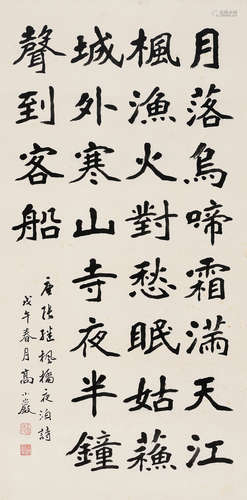 月落烏啼霜滿天江
楓漁火對愁眠姑蘓
城外寒山寺夜半鐘
聲到客船
唐張継楓橋夜泊詩
戊午春月高小巖